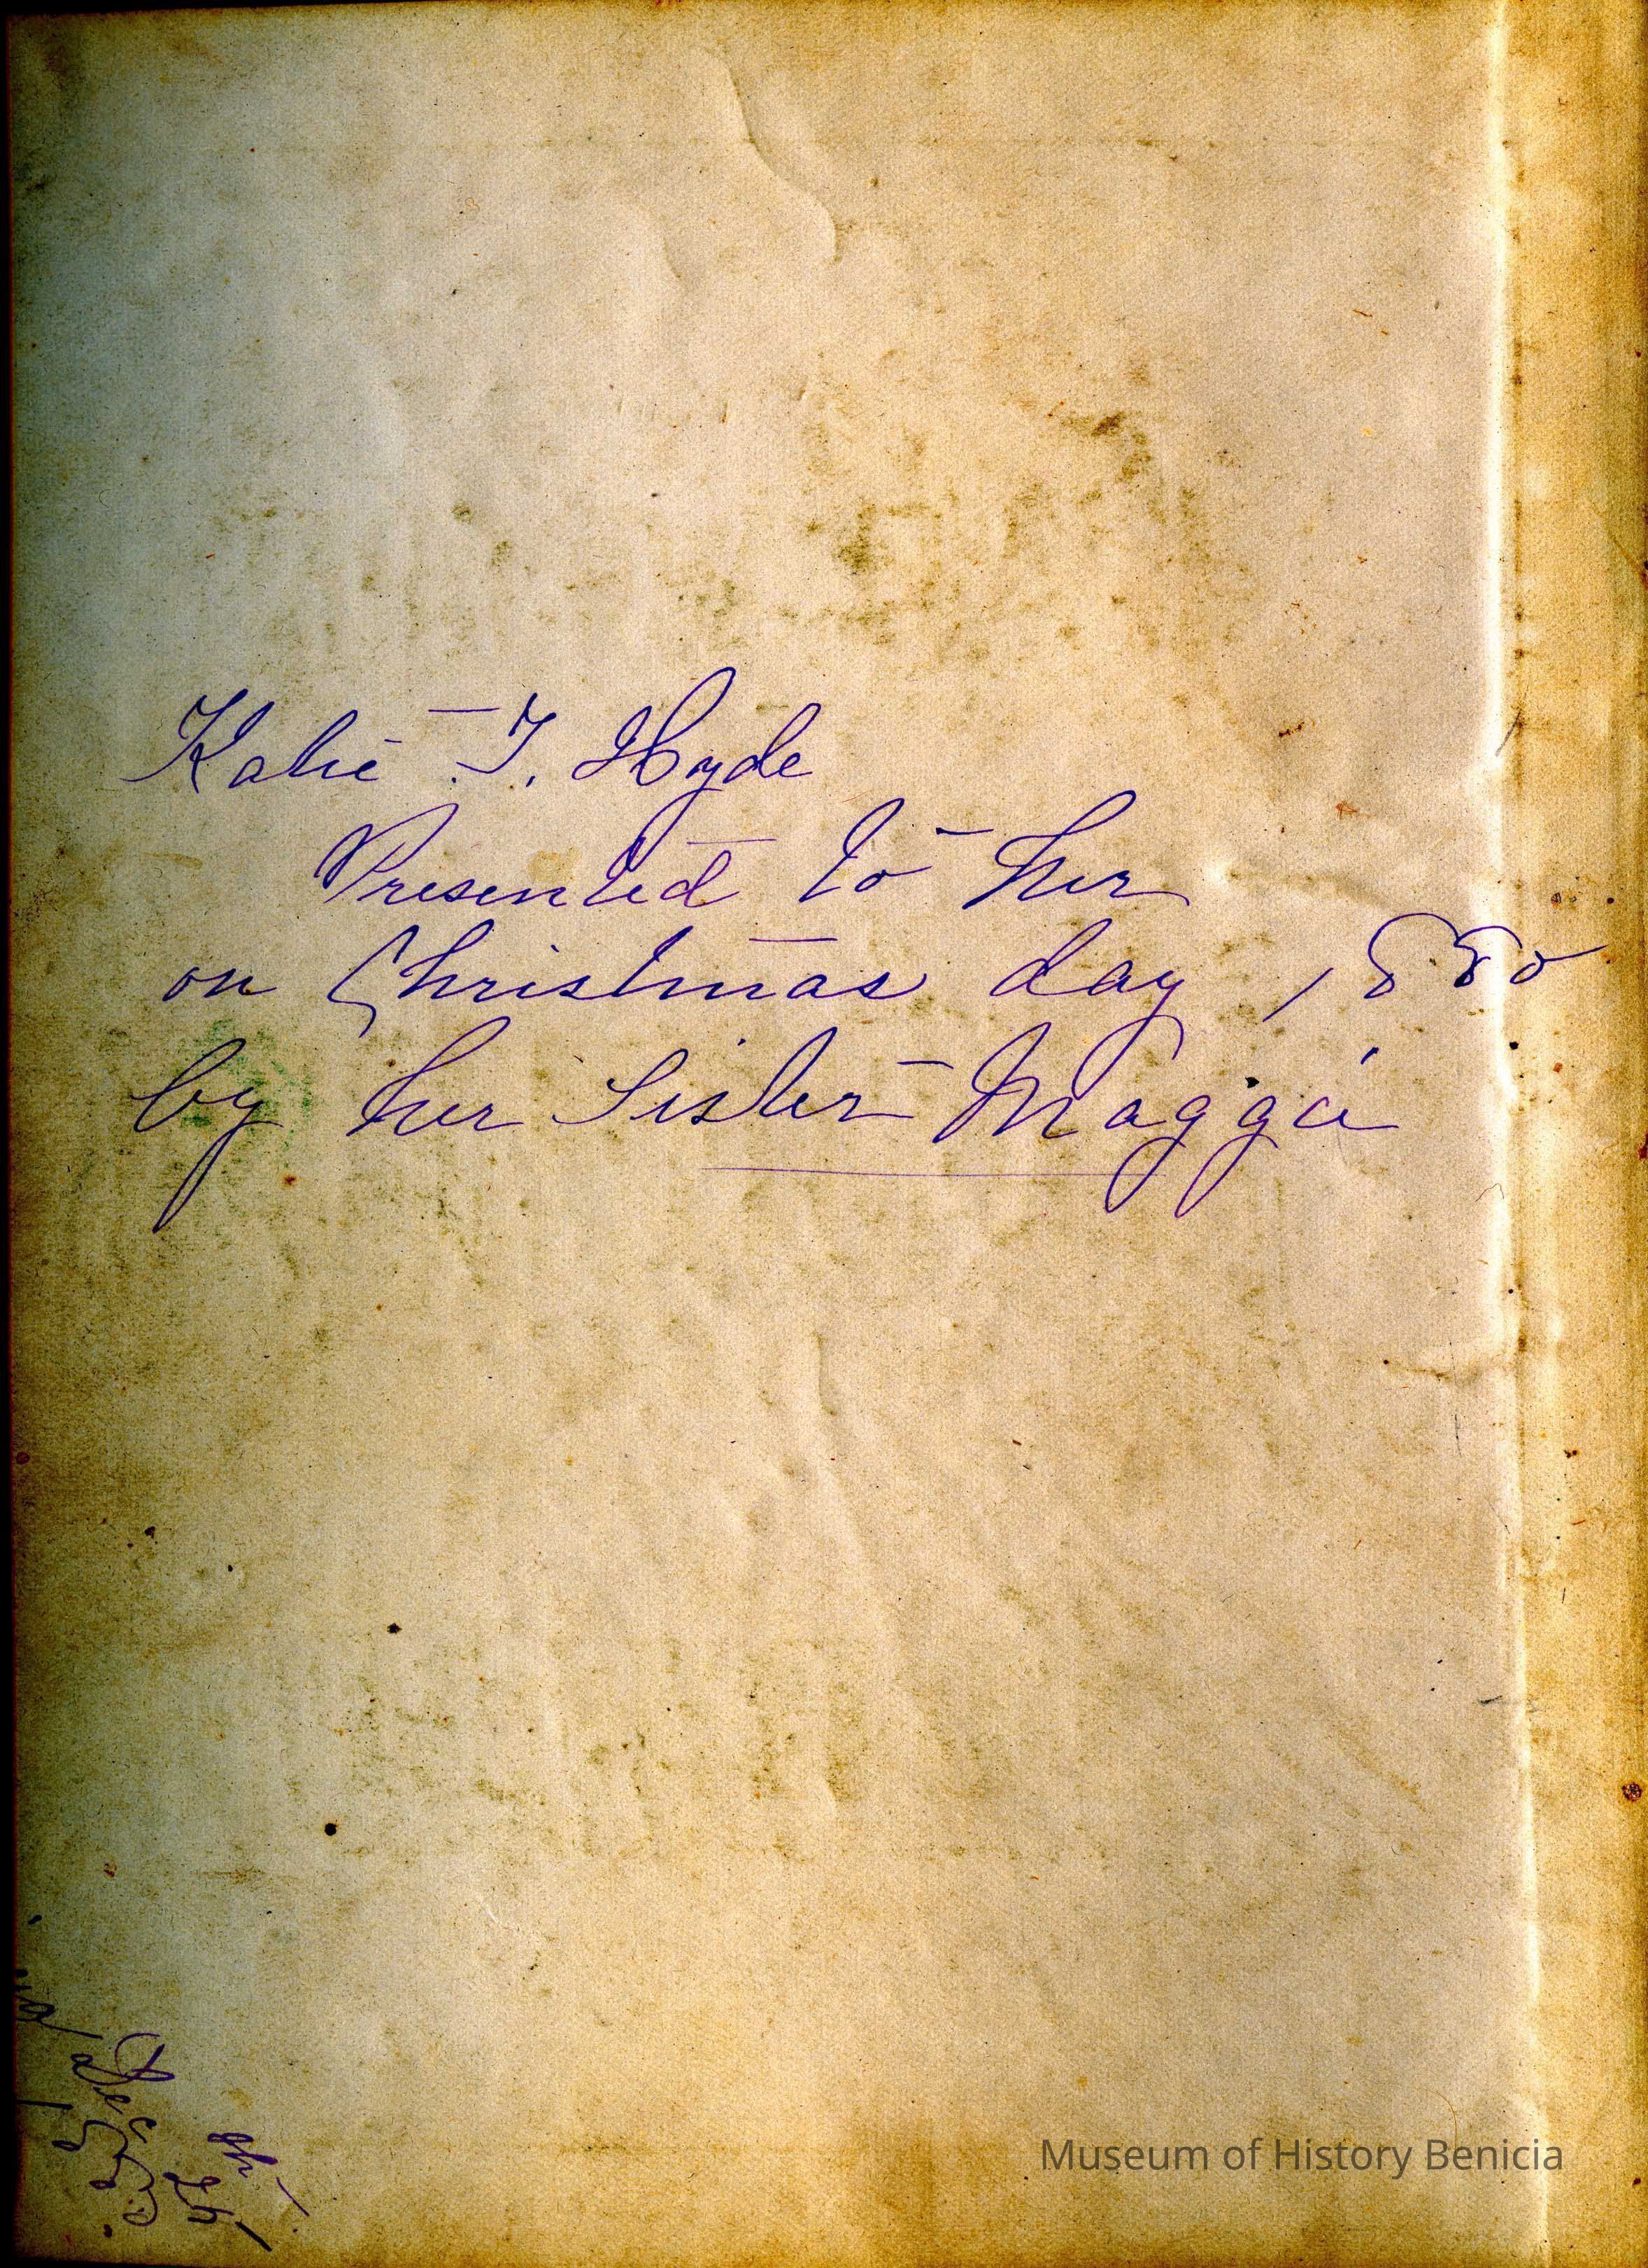 Katie T. Hyde
Presented to her
on Christmas day, 1880
by her Sister Maggie
Museum of History Benicia